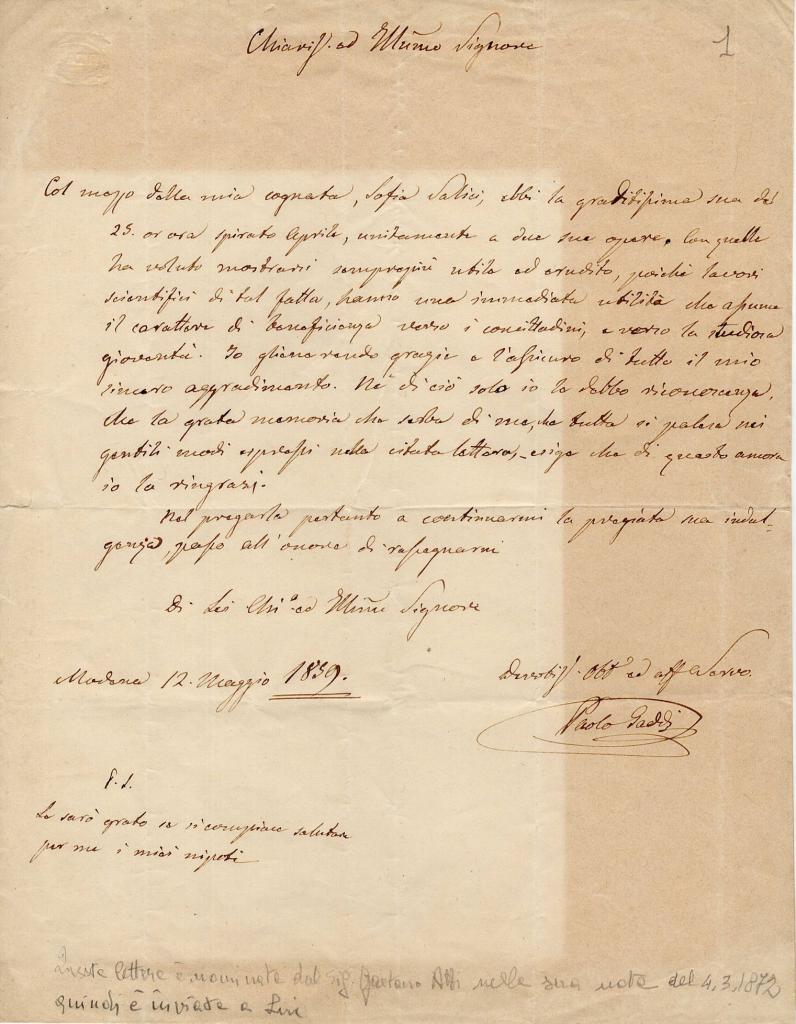 Chiariss. ed Illumo Signore
1
Col mezzo della mia cognata, Sofia Salici, ebbi la graditissima sua del
25. or ora spirato Aprile, unitamente a due sue opere. Con quelle
ha voluto mostrarsi semprepiù utile ed erudito, poichè lavori
scientifici di tal fatta, hanno una immediata utilità che assume
il carattere di beneficienza verso i concittadini, e verso la studiosa
gioventù. Io gliene rendo grazie e l'assicuro di tutto il mio
sincero aggradimento. Nè di ciò solo io le debbo riconoscenza,
chè la grata memoria che serba di me, che tutta si palesa nei
gentili modi espressi nella citata lettera, esige che di questo ancora
io la ringrazi.
Nel pregarla pertanto a continuarmi la pregiata sua indul-
genza, passo all'onore di rassegnarmi
Di Lei Chi.o ed Illmo Signore
Modena 12. Maggio 1859.
Devotiss. Obbo ed aff Servo.
Paolo Gaddi
P. S.
Le sarò grato se si compiace salutare
per me i miei nipoti
Queste lettere è nominate dal Sig. Gaetano nella sua nota del 4.3.1872
quindi è inviate a